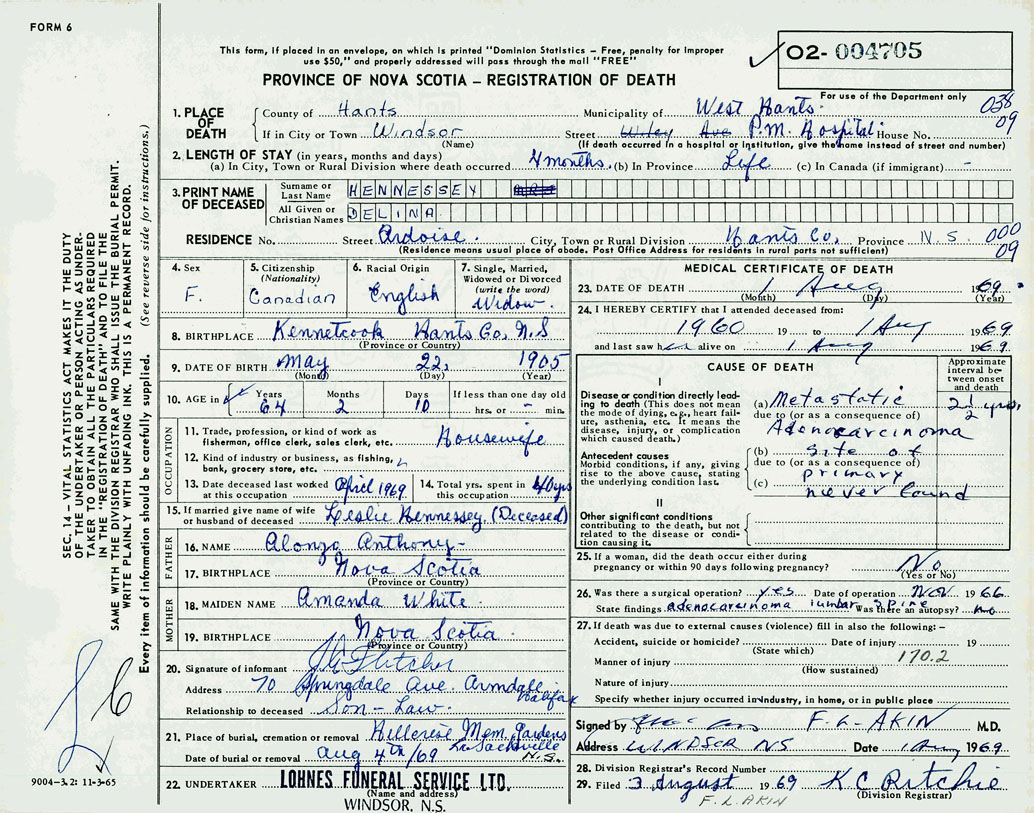 FORM 6
This form, if placed in an envelope, on which is printed "Dominion Statistics – Free, penalty for improper
use $50," and properly addressed will pass through the mail "FREE"
PROVINCE OF NOVA SCOTIA – REGISTRATION OF DEATH
02- 004705
For use of the Department only
038
09
1. PLACE OF DEATH
County of Hants Municipality of West Hants
If in City or Town Windsor Street Wiley Ave P.M. Hospital House No.
(Name) (If death occurred in a hospital or institution, give the name instead of street and number)
2. LENGTH OF STAY (in years, months and days)
(a) In City, Town or Rural Division where death occurred 4 months. (b) In Province Life (c) In Canada (if immigrant) -
3. PRINT NAME OF DECEASED
Surname or Last Name HENNESSEY
All Given or Christian Names DELINA
RESIDENCE No. Street Ardoise. City, Town or Rural Division Hants Co. Province N.S. 000
(Residence means usual place of abode. Post Office Address for residents in rural parts not sufficient) 09
4. Sex F.
5. Citizenship (Nationality) Canadian
6. Racial Origin English
7. Single, Married, Widowed or Divorced (write the word) Widow.
8. BIRTHPLACE Kennetcook Hants Co, N.S
(Province or Country)
9. DATE OF BIRTH May 22, 1905
(Month) (Day) (Year)
10. AGE in Years 64 Months 2 Days 10 If less than one day old hrs. or - min.
OCCUPATION
11. Trade, profession, or kind of work as fisherman, office clerk, sales clerk, etc. Housewife
12. Kind of industry or business, as fishing, bank, grocery store, etc.
13. Date deceased last worked at this occupation April 1969
14. Total yrs. spent in this occupation 40 yrs
15. If married give name of wife or husband of deceased Leslie Hennessey. (Deceased)
FATHER
16. NAME Alonzo Anthony-
17. BIRTHPLACE Nova Scotia
(Province or Country)
MOTHER
18. MAIDEN NAME Amanda White.
19. BIRTHPLACE Nova Scotia.
(Province or Country)
20. Signature of informant Fletcher
Address 70 Springdale Ave. Armdale Halifax
Relationship to deceased Son - Law.
21. Place of burial, cremation or removal Hillcrest Mem. Gardens
Lr Sackville
Date of burial or removal Aug 4th/69 N.S.
22. UNDERTAKER LOHNES FUNERAL SERVICE LTD.
(Name and address)
WINDSOR, N.S.
MEDICAL CERTIFICATE OF DEATH
23. DATE OF DEATH 1 Aug 1969
(Month) (Day) (Year)
24. I HEREBY CERTIFY that I attended deceased from:
1960 19 to 1 Aug 1969
and last saw her alive on 1 Aug 1969.
CAUSE OF DEATH
Approximate interval between onset and death
I
Disease or condition directly leading to death (This does not mean the mode of dying, e.g., heart failure, asthenia, etc. It means the disease, injury, or complication which caused death.)
(a) Metastatic 2½ yrs.
due to (or as a consequence of)
Adenocarcinoma
Antecedent causes
Morbid conditions, if any, giving rise to the above cause, stating the underlying condition last.
(b) site of
due to (or as a consequence of)
primary
(c) never found
II
Other significant conditions
contributing to the death, but not related to the disease or condition causing it.
25. If a woman, did the death occur either during pregnancy or within 90 days following pregnancy? No
(Yes or No)
26. Was there a surgical operation? yes Date of operation Nov 1966
State findings adenocarcinoma lumbar spine Was there an autopsy? no
27. If death was due to external causes (violence) fill in also the following: –
Accident, suicide or homicide? Date of injury 19
(State which)
Manner of injury 170.2
(How sustained)
Nature of injury
Specify whether injury occurred in industry, in home, or in public place
Signed by F. L. AKIN M.D.
Address WINDSOR NS Date 1 Aug 1969
28. Division Registrar's Record Number
29. Filed 3 August 1969 K C Ritchie
(Division Registrar)
F. L. AKIN
SEC. 14 – VITAL STATISTICS ACT MAKES IT THE DUTY
OF THE UNDERTAKER OR PERSON ACTING AS UNDER-
TAKER TO OBTAIN ALL THE PARTICULARS REQUIRED
IN THE "REGISTRATION OF DEATH" AND TO FILE THE
SAME WITH THE DIVISION REGISTRAR WHO SHALL ISSUE THE BURIAL PERMIT.
WRITE PLAINLY WITH UNFADING INK. THIS IS A PERMANENT RECORD.
Every item of information should be carefully supplied. (See reverse side for instructions.)
9004–3.2: 11-3-65